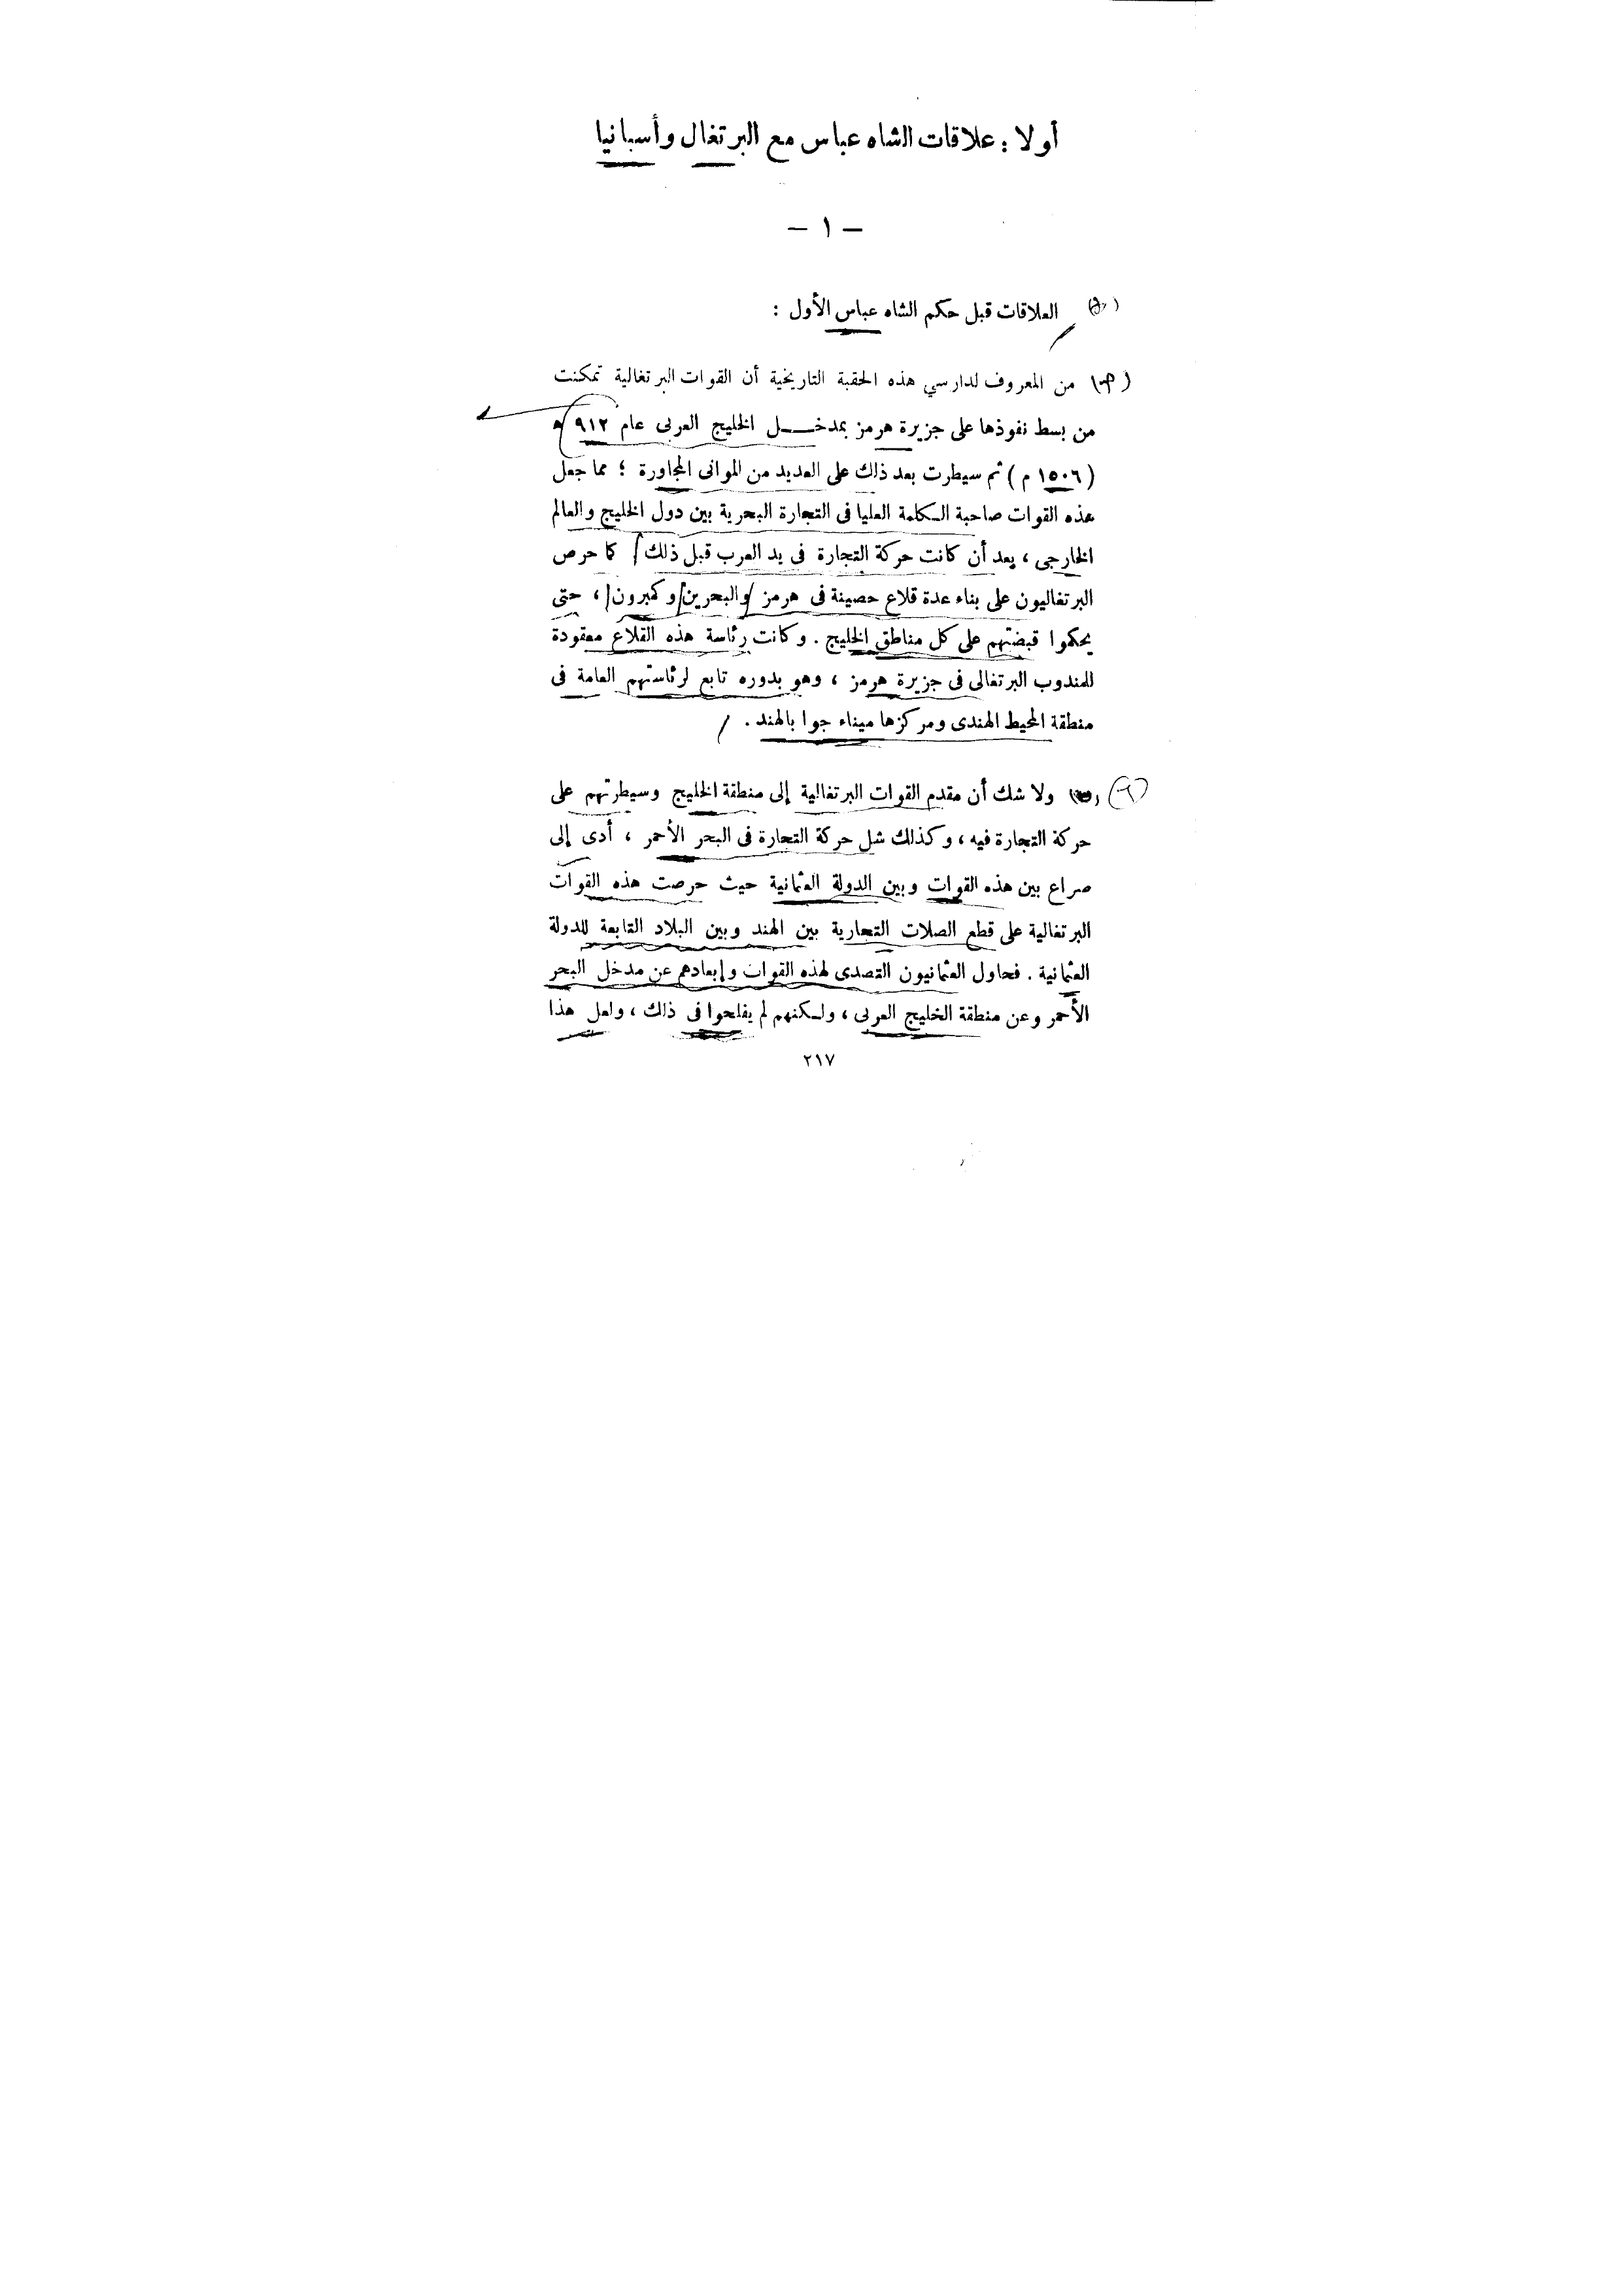 أولا : علاقات الشاه عباس مع البرتغال وأسبانيا
— ١ —
العلاقات قبل حكم الشاه عباس الأول :
من المعروف لدارسي هذه الحقبة التاريخية أن القوات البرتغالية تمكنت
من بسط نفوذها على جزيرة هرمز بمدخـــل الخليج العربى عام ٩١٢ ه
( ١٥٠٦ م ) ثم سيطرت بعد ذلك على العديد من الموانى المجاورة ؛ مما جعل
هذه القوات صاحبة الكلمة العليا فى التجارة البحرية بين دول الخليج والعالم
الخارجى ، بعد أن كانت حركة التجارة فى يد العرب قبل ذلك / كما حرص
البرتغاليون على بناء عدة قلاع حصينة فى هرمز / والبحرين / وكمبرون / ، حتى
يحكموا قبضتهم على كل مناطق الخليج . وكانت رئاسة هذه القلاع معقودة
للمندوب البرتغالى فى جزيرة هرمز ، وهو بدوره تابع لرئاستهم العامة فى
منطقة المحيط الهندى ومركزها ميناء جوا بالهند . /
(٦) ولا شك أن مقدم القوات البرتغالية إلى منطقة الخليج وسيطرتهم على
حركة التجارة فيه ، وكذلك شل حركة التجارة فى البحر الأحمر ، أدى إلى
صراع بين هذه القوات وبين الدولة العثمانية حيث حرصت هذه القوات
البرتغالية على قطع الصلات التجارية بين الهند وبين البلاد التابعة للدولة
العثمانية . فحاول العثمانيون التصدى لهذه القوات وإبعادهم عن مدخل البحر
الأحمر وعن منطقة الخليج العربى ، ولكنهم لم يفلحوا فى ذلك ، ولعل هذا
٢١٧